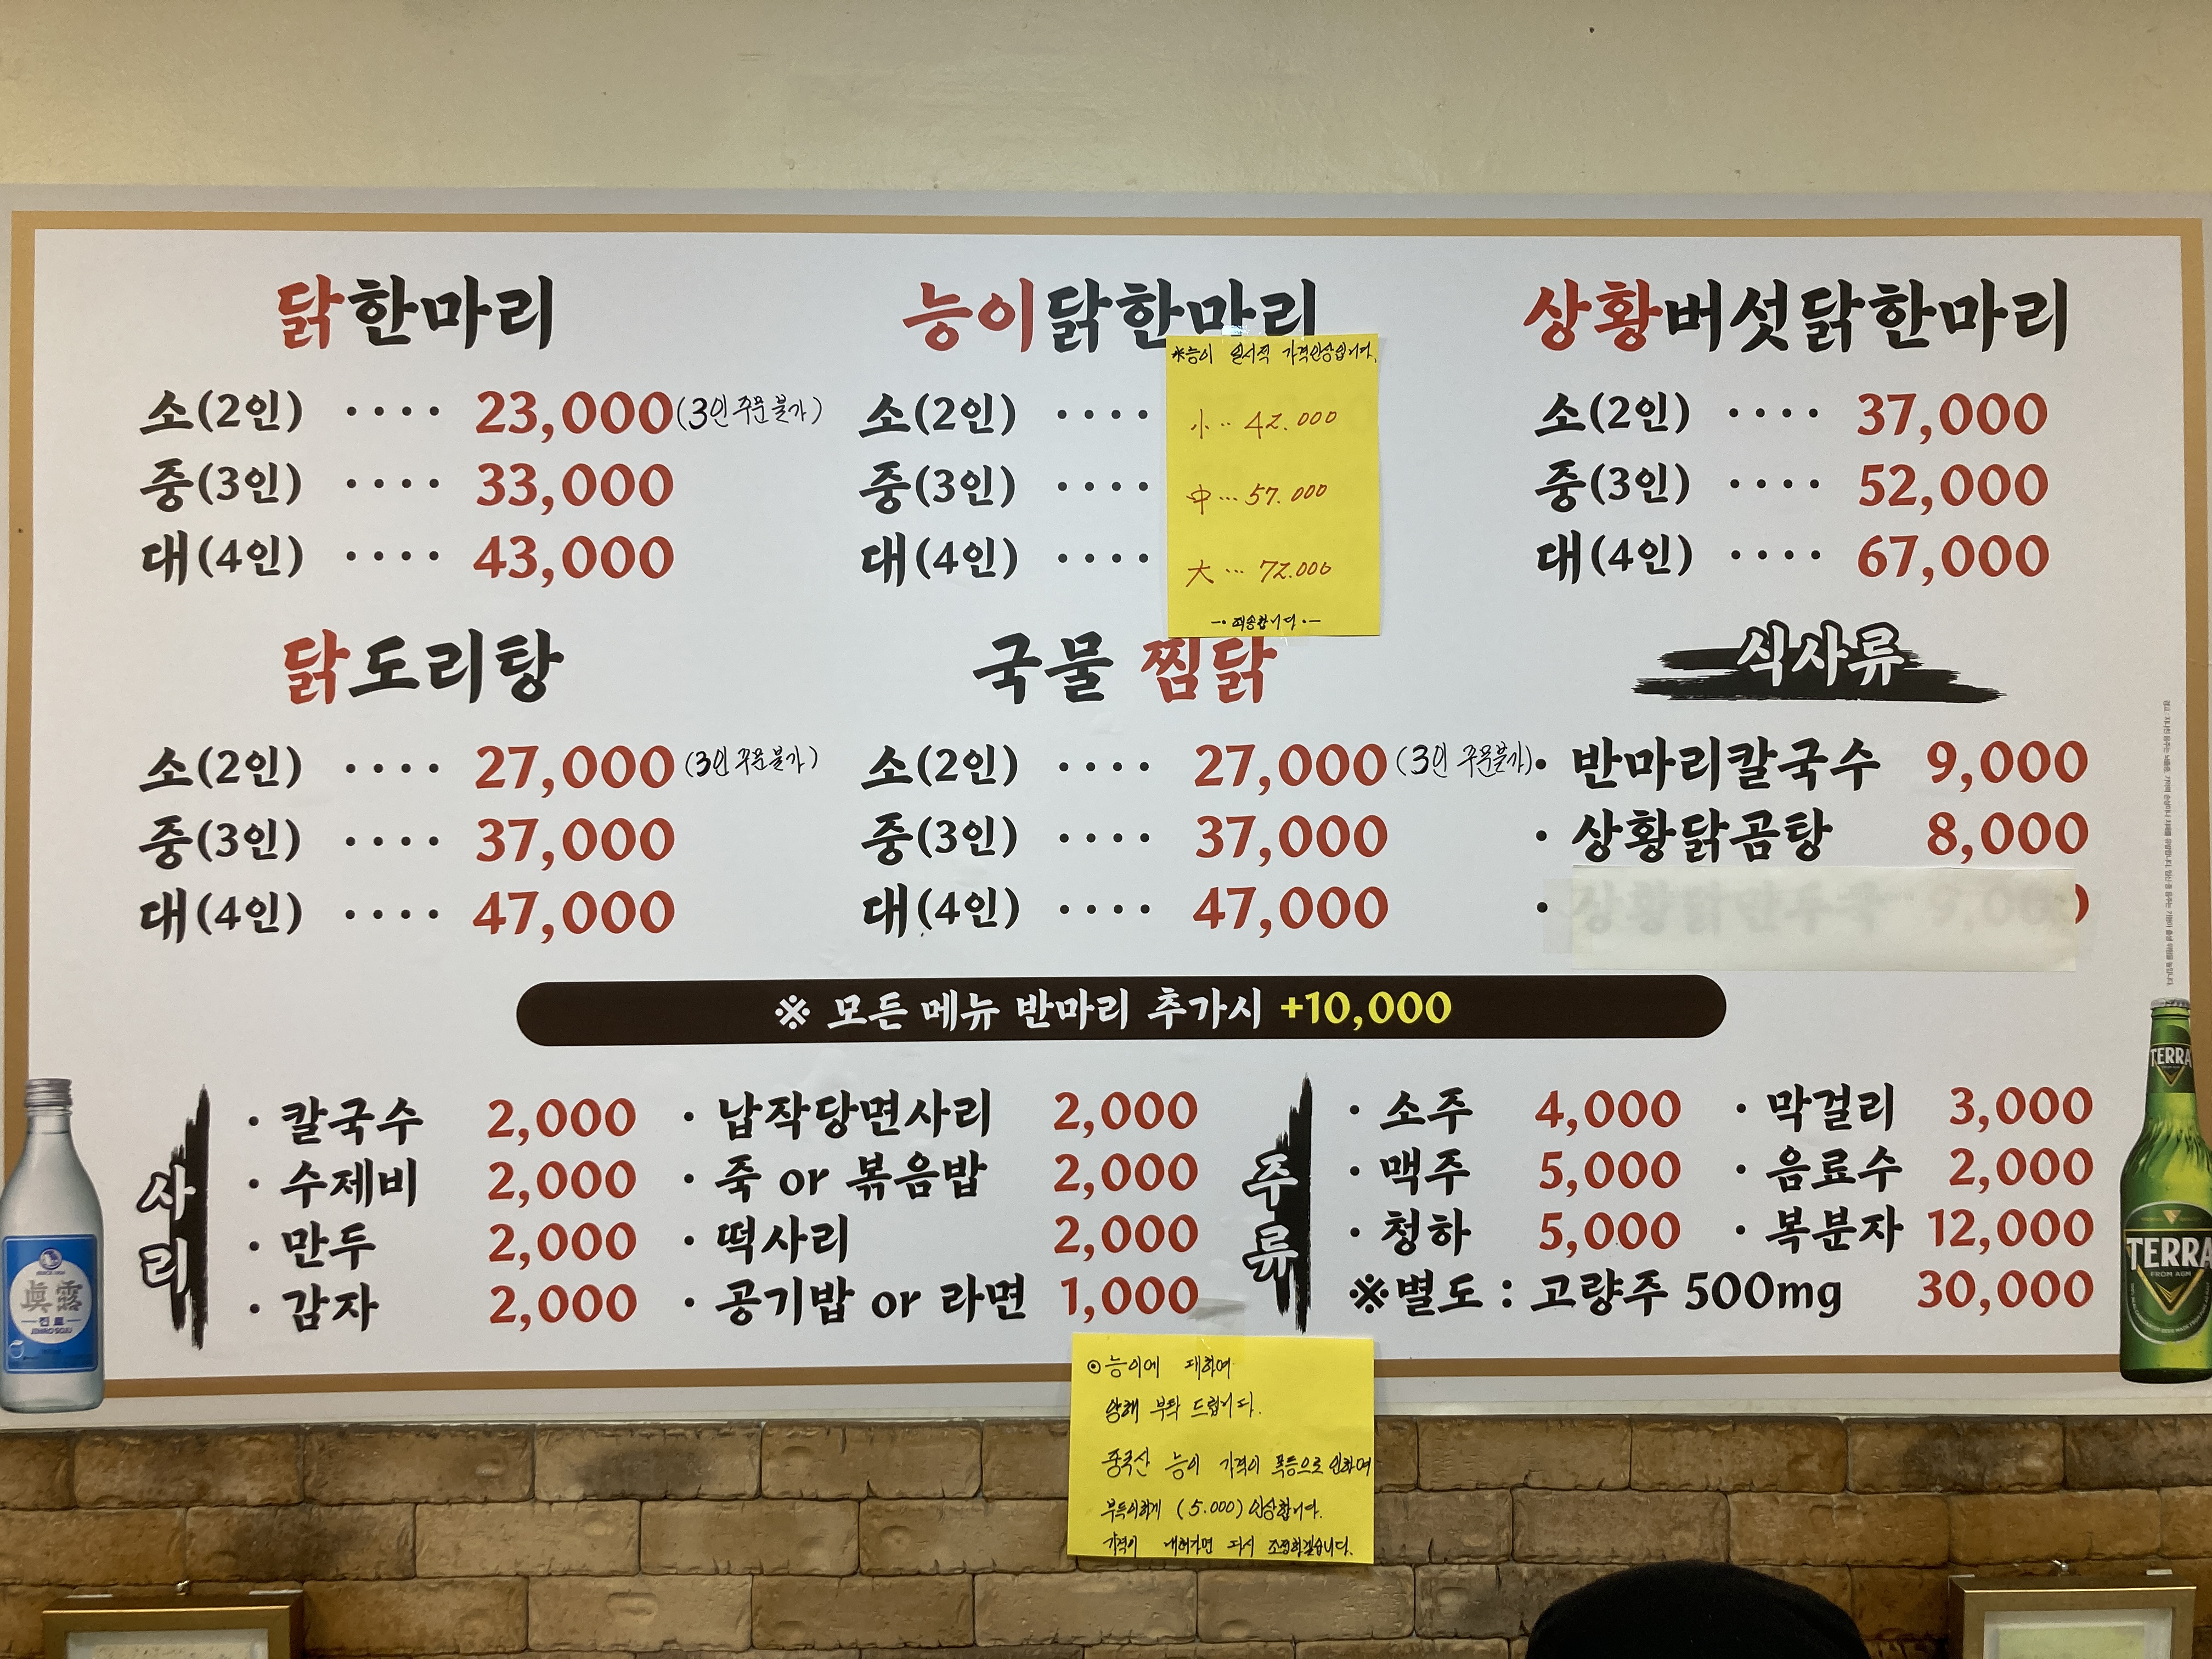 닭한마리
소(2인) ···· 23,000 (3인 주문불가)
중(3인) ···· 33,000
대(4인) ···· 43,000
능이닭한마리
※능이 일시적 가격인상입니다.
소(2인) ···· 小 ·· 42.000
중(3인) ···· 中 ··· 57.000
대(4인) ···· 大 ··· 72.000
-· 죄송합니다 ·-
상황버섯닭한마리
소(2인) ···· 37,000
중(3인) ···· 52,000
대(4인) ···· 67,000
닭도리탕
소(2인) ···· 27,000 (3인 주문불가)
중(3인) ···· 37,000
대(4인) ···· 47,000
국물 찜닭
소(2인) ···· 27,000 (3인 주문불가)
중(3인) ···· 37,000
대(4인) ···· 47,000
식사류
· 반마리칼국수 9,000
· 상황닭곰탕 8,000
※ 모든 메뉴 반마리 추가시 +10,000
사리
· 칼국수 2,000
· 수제비 2,000
· 만두 2,000
· 감자 2,000
· 납작당면사리 2,000
· 죽 or 볶음밥 2,000
· 떡사리 2,000
· 공기밥 or 라면 1,000
주류
· 소주 4,000
· 맥주 5,000
· 청하 5,000
· 막걸리 3,000
· 음료수 2,000
· 복분자 12,000
※별도 : 고량주 500mg 30,000
眞露
진로
JINRO SOJU
TERRA
TERRA
FROM AGM
⊙능이에 대하여
양해 부탁 드립니다.
중국산 능이 가격이 폭등으로 인하여
부득이하게 (5.000) 인상합니다.
가격이 내려가면 다시 조정하겠습니다.